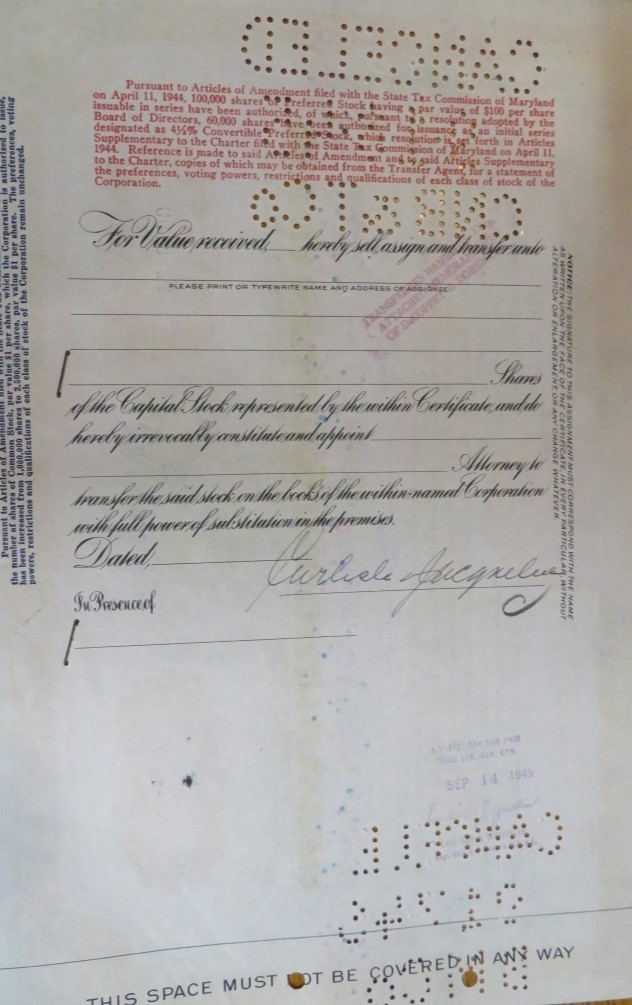 Pursuant to Articles of Amendment filed with the State Tax Commission of Maryland
on April 11, 1944, 100,000 shares of Preferred Stock having a par value of $100 per share
issuable in series have been authorized, of which, pursuant to a resolution adopted by the
Board of Directors, 60,000 shares have been authorized for issuance as an initial series
designated as 4½% Convertible Preferred Stock, which resolution is set forth in Articles
Supplementary to the Charter filed with the State Tax Commission of Maryland on April 11,
1944. Reference is made to said Articles of Amendment and to said Articles Supplementary
to the Charter, copies of which may be obtained from the Transfer Agent, for a statement of
the preferences, voting powers, restrictions and qualifications of each class of stock of the
Corporation.
For Value received, hereby sell, assign and transfer unto
PLEASE PRINT OR TYPEWRITE NAME AND ADDRESS OF ASSIGNEE
Shares
of the Capital Stock represented by the within Certificate, and do
hereby irrevocably constitute and appoint
Attorney to
transfer the said stock on the books of the within-named Corporation
with full power of substitution in the premises.
Dated,
Carlisle & Jacquelin
In Presence of
NOTICE: THE SIGNATURE TO THIS ASSIGNMENT MUST CORRESPOND WITH THE NAME
AS WRITTEN UPON THE FACE OF THE CERTIFICATE, IN EVERY PARTICULAR, WITHOUT
ALTERATION OR ENLARGEMENT OR ANY CHANGE WHATEVER
Pursuant to Articles of Amendment filed with the State
the number of shares of Common Stock, par value $1 per share, which the Corporation is authorized to issue,
has been increased from 1,000,000 shares to 2,500,000 shares, par value $1 per share. The preferences, voting
powers, restrictions and qualifications of each class of stock of the Corporation remain unchanged.
SEP 14 1945
CANCELLED
THIS SPACE MUST NOT BE COVERED IN ANY WAY